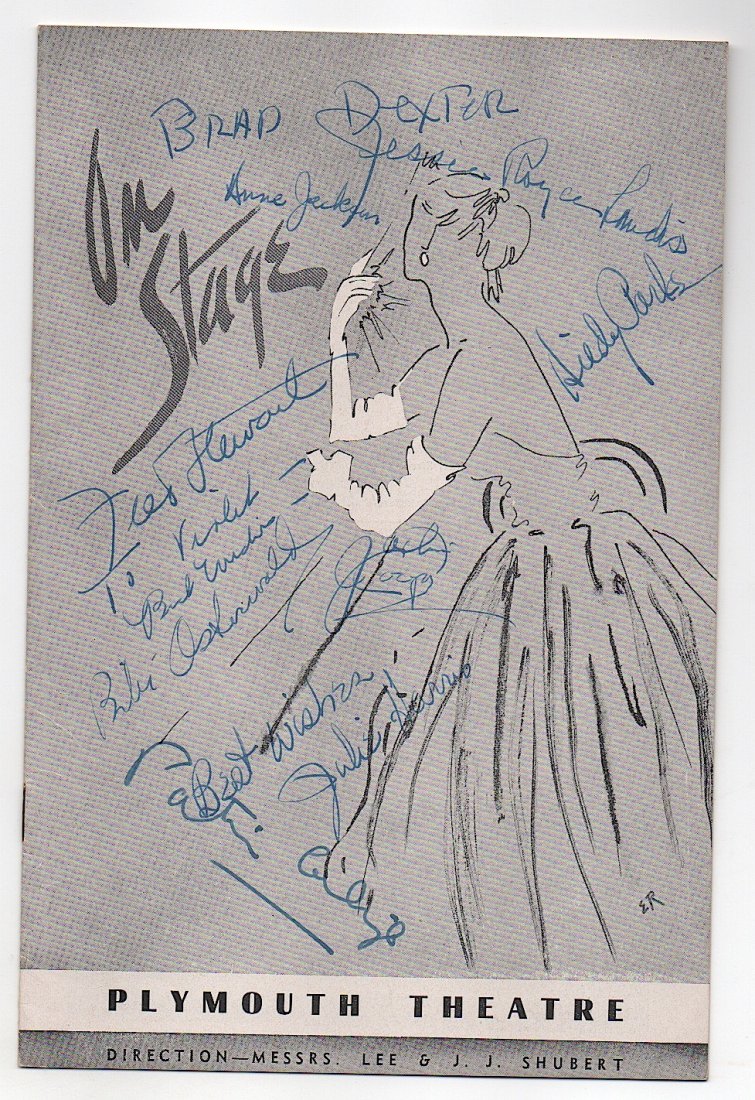 BRAD DEXTER
Jessie Royce Landis
Anne Jackson
On
Stage
Hildy Parks
Fred Stewart
To Violet
Bibi Osterwald
Best Wishes
Julie Harris
ER
PLYMOUTH THEATRE
DIRECTION—MESSRS. LEE & J. J. SHUBERT